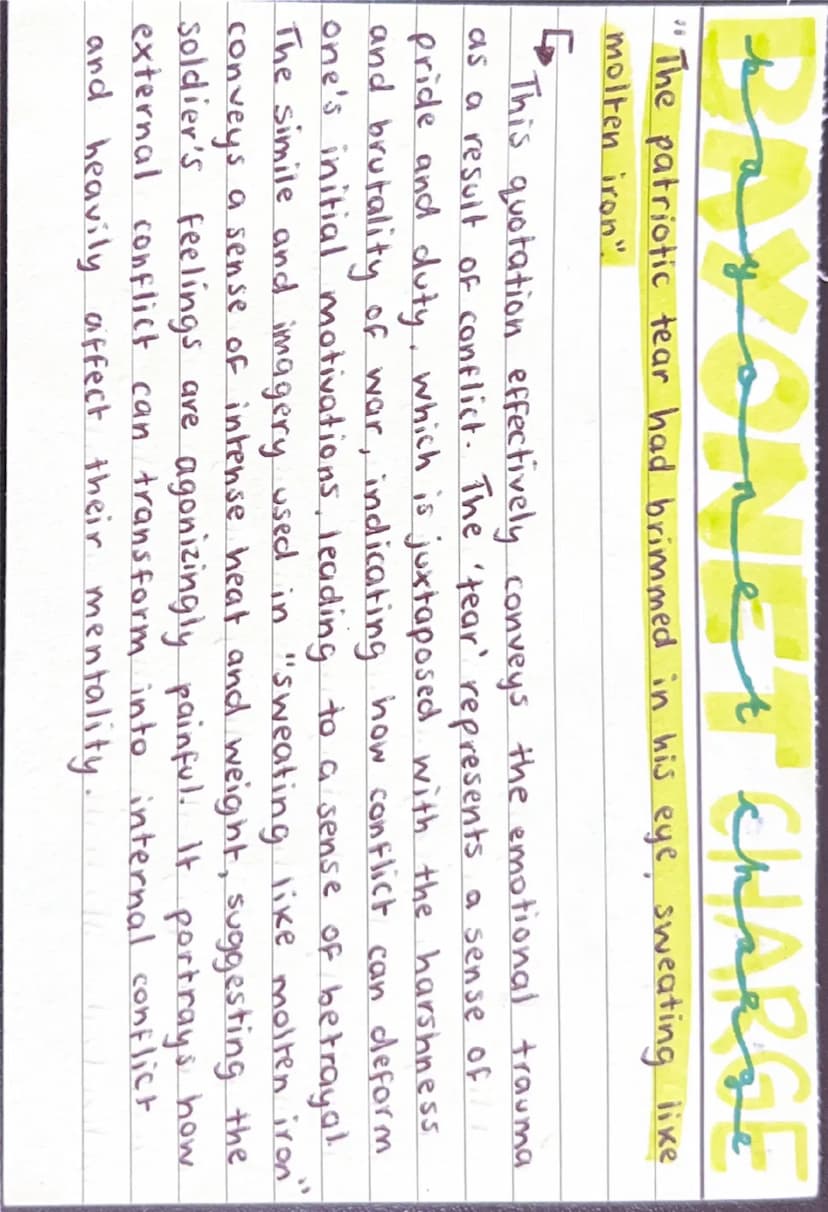 BAYONET CHARGE
bayonet charge
"The patriotic tear had brimmed in his eye, sweating like
molten iron".
↳ This quotation effectively conveys the emotional trauma
as a result of conflict. The 'tear' represents a sense of
pride and duty, which is juxtaposed with the harshness
and brutality of war, indicating how conflict can deform
one's initial motivations, leading to a sense of betrayal.
The simile and imagery used in "sweating like molten iron"
conveys a sense of intense heat and weight, suggesting the
soldier's feelings are agonizingly painful. It portrays how
external conflict can transform into internal conflict
and heavily affect their mentality.